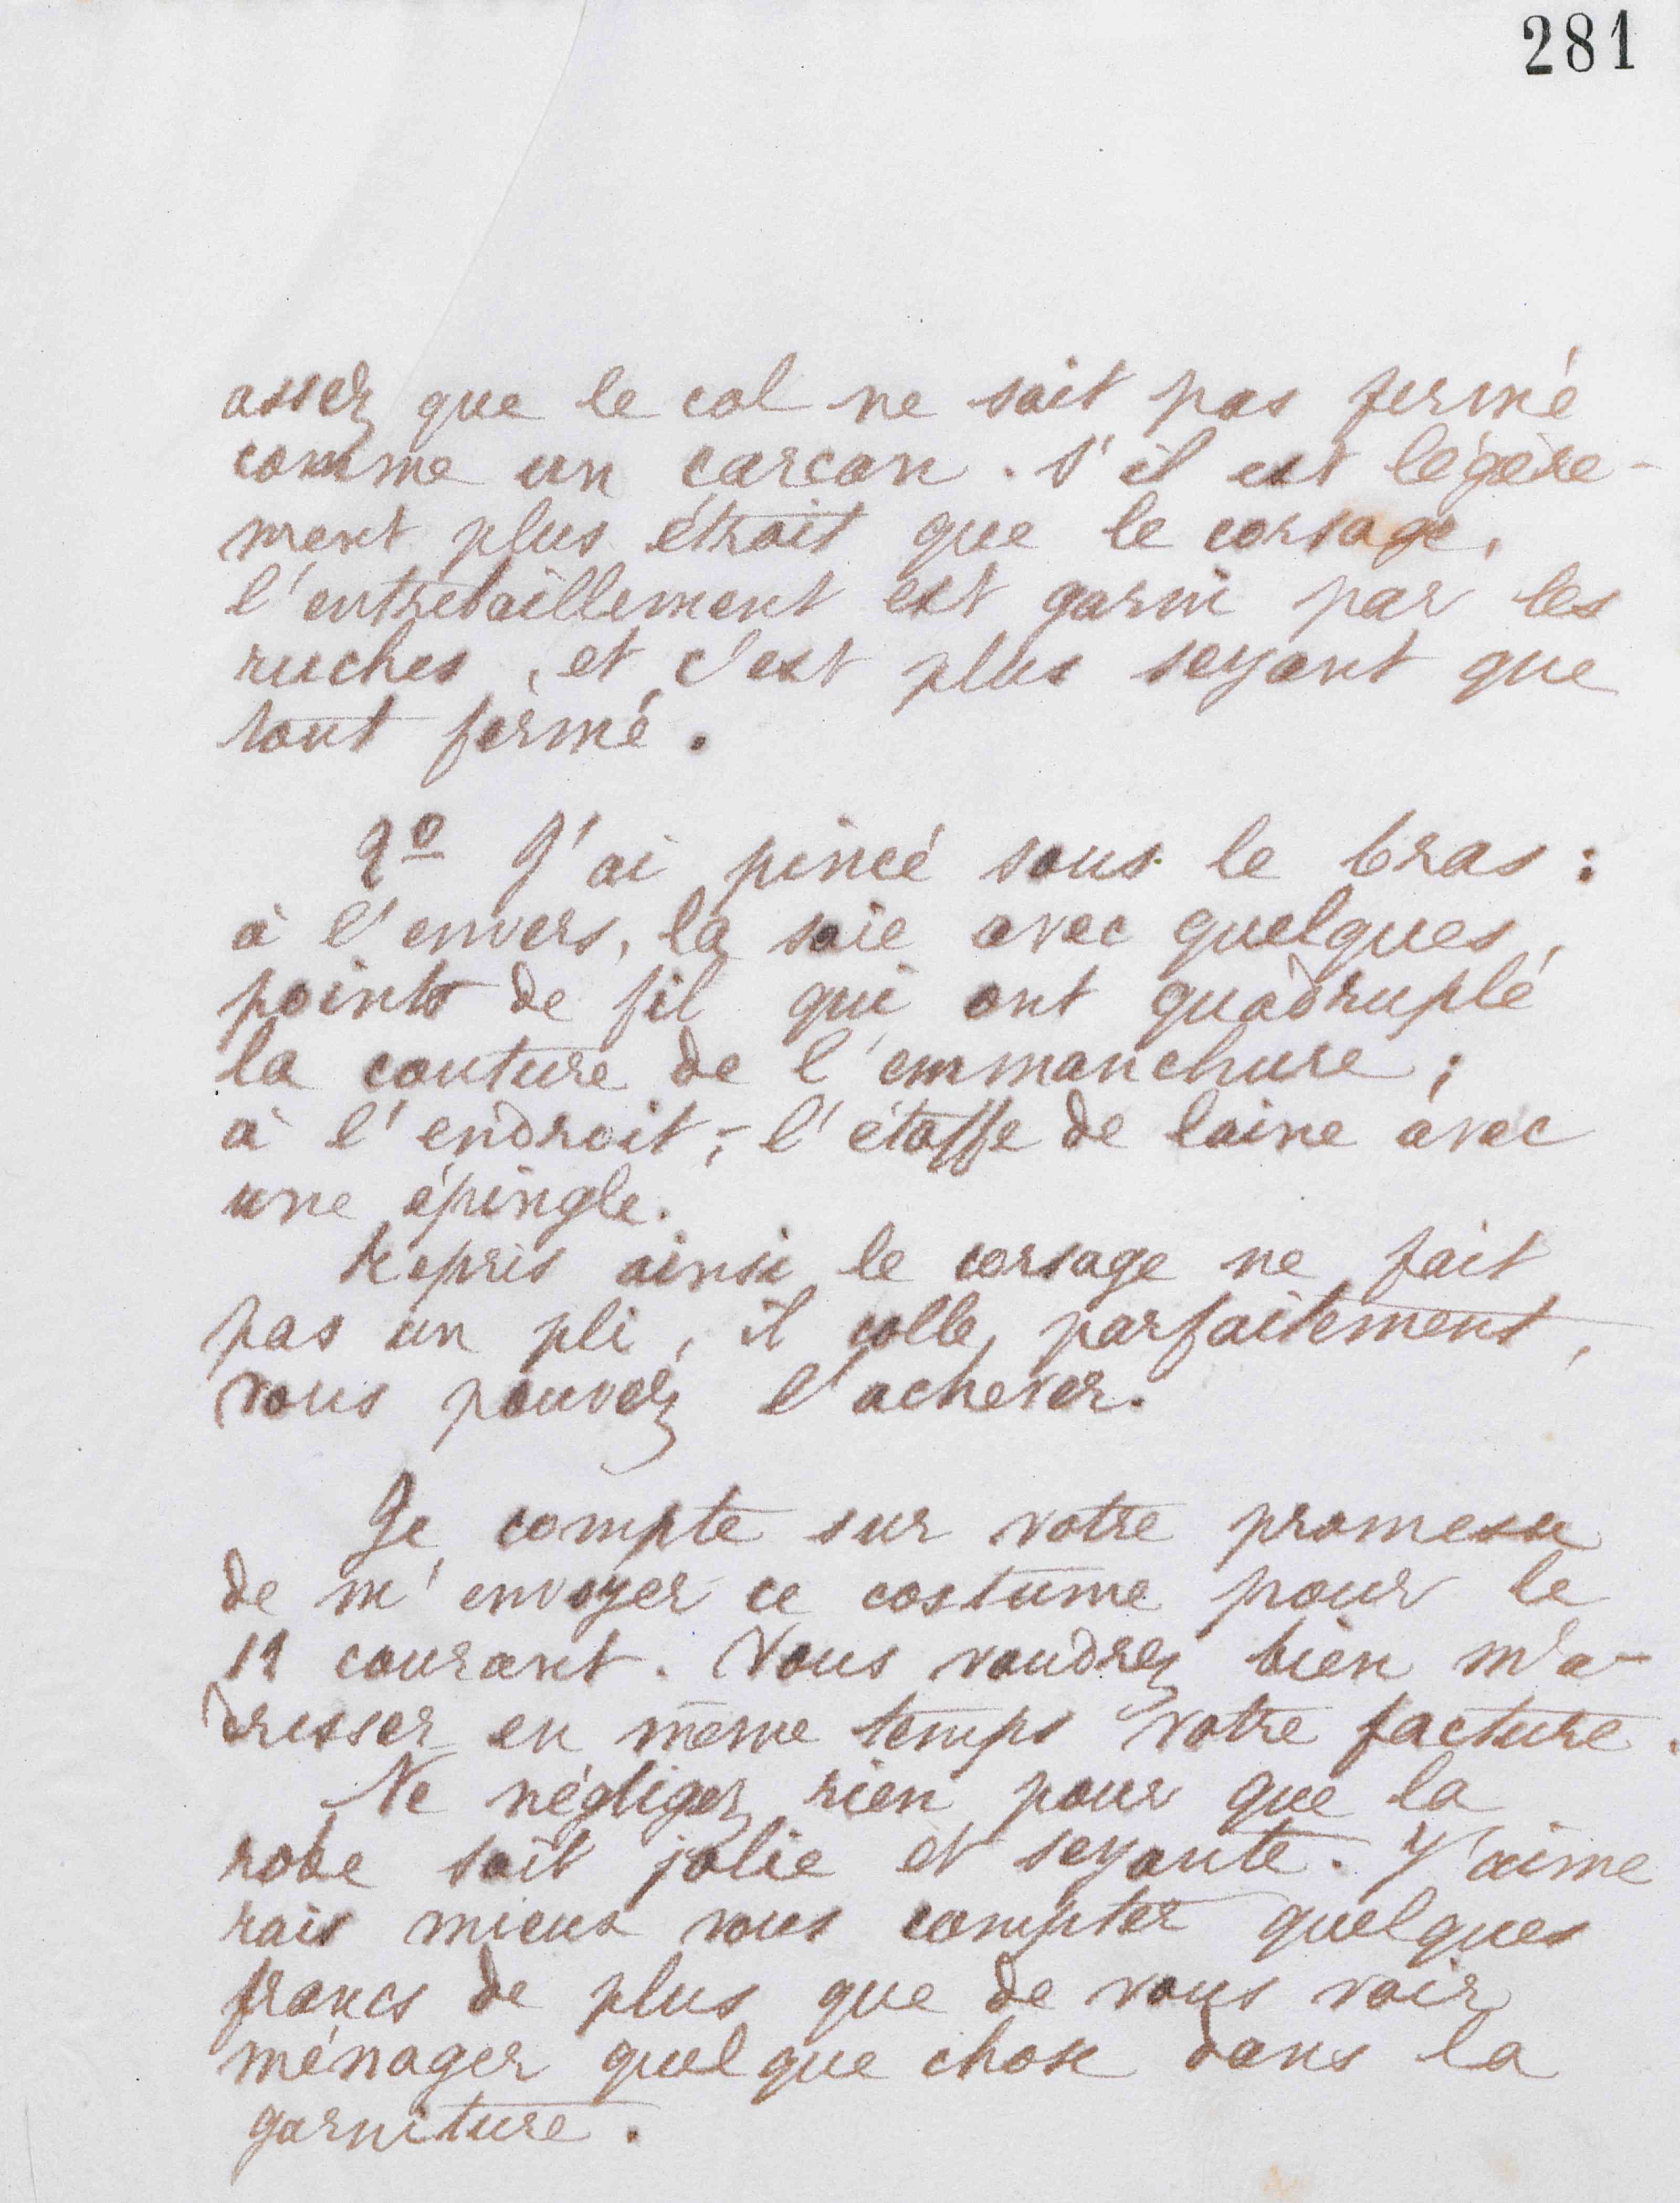 281
assez que le col ne soit pas fermé
comme un carcan. S'il est légère-
ment plus étroit que le corsage,
l'entrebaillement est garni par les
ruches, et c'est plus seyant que
tout fermé.
2º J'ai pincé sous le bras :
à l'envers, la soie avec quelques
points de fil qui ont quadruplé
la couture de l'emmanchure ;
à l'endroit, l'étoffe de laine avec
une épingle.
Repris ainsi le corsage ne fait
pas un pli, il colle parfaitement,
vous pouvez l'achever.
Je compte sur votre promesse
de m'envoyer ce costume pour le
12 courant. Vous voudrez bien m'a-
dresser en même temps votre facture.
Ne négligez rien pour que la
robe soit jolie et seyante. J'aime
rais mieux vous compter quelques
francs de plus que de vous voir
ménager quelque chose dans la
garniture.